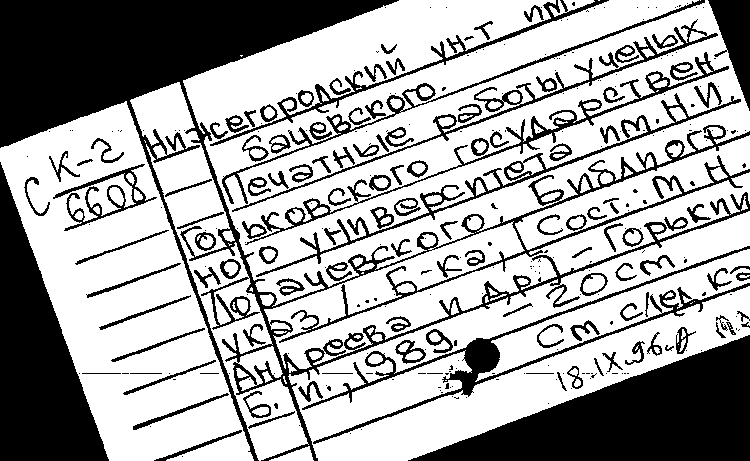 Нижегородский ун-т им.
бачевского.
Печатные работы ученых
Горьковского государствен-
ного университета им. Н.И.
Лобачевского: Библиогр.
указ. /... Б-ка; [Сост.: М. Н.
Андреева и др.] – Горький
Б. и., 1989. – 20 см.
См. след. ка
С К-2
6608
18.IX.96.